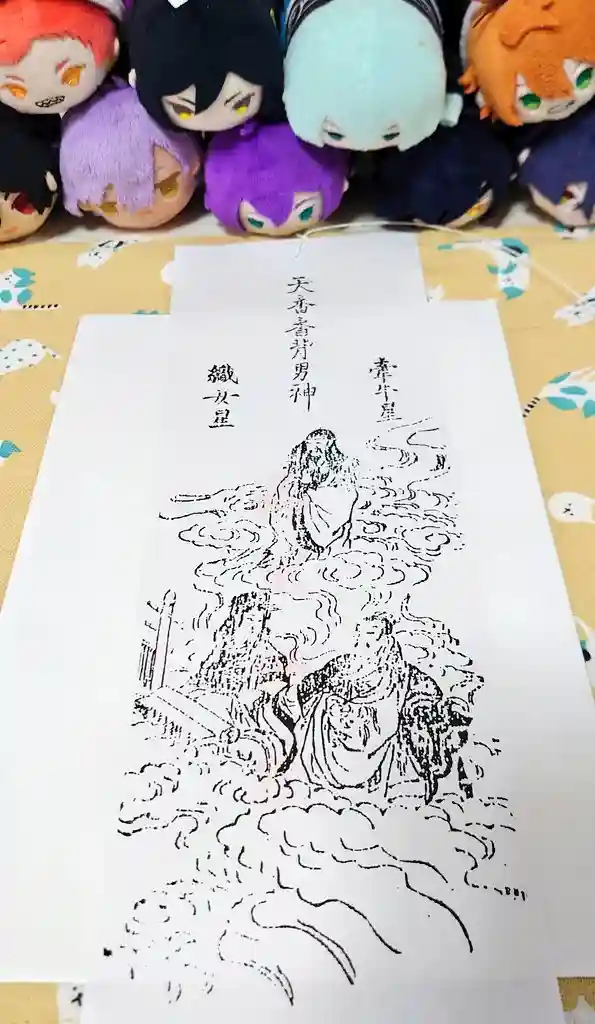 牽牛星
天香香背男神
織女星